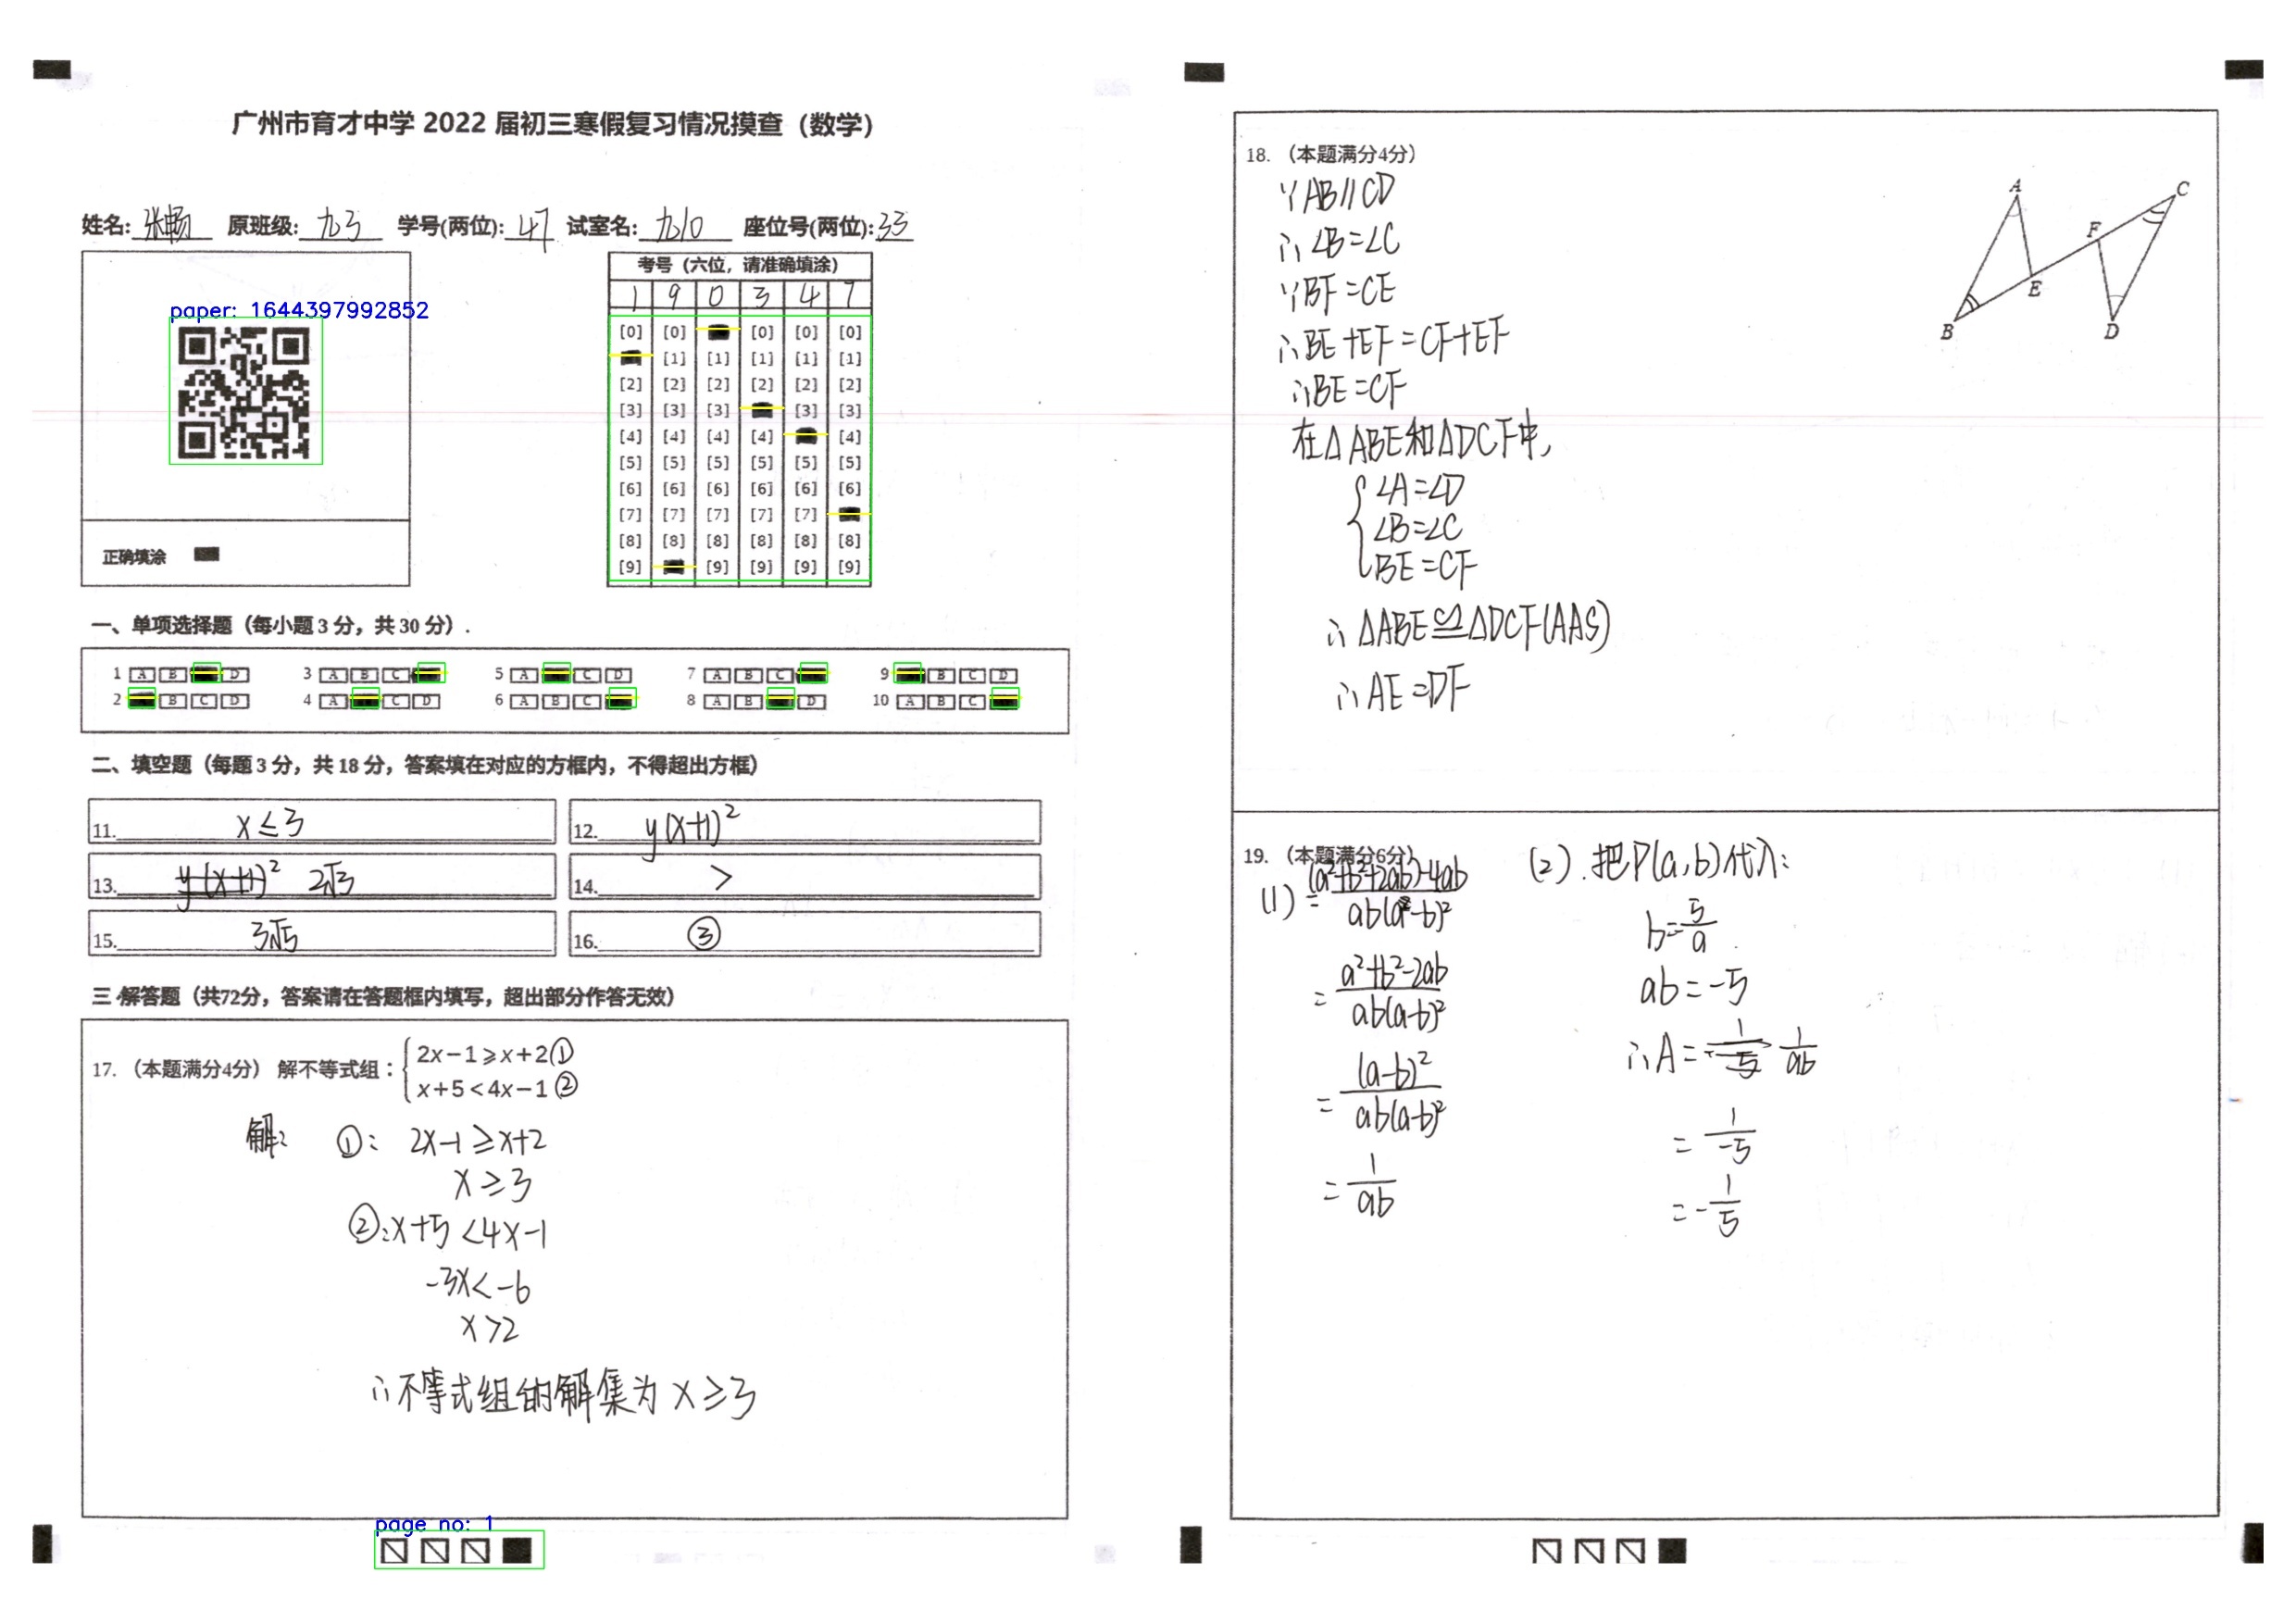 广州市育才中学 2022 届初三寒假复习情况摸查（数学）
姓名: 张畅 原班级: 九3 学号(两位): 47 试室名: 九10 座位号(两位): 33
paper: 1644397992852
正确填涂
考号（六位，请准确填涂）
1 9 0 3 4 7
[0] [0] [0] [0] [0]
[1] [1] [1] [1] [1]
[2] [2] [2] [2] [2] [2]
[3] [3] [3] [3] [3]
[4] [4] [4] [4] [4]
[5] [5] [5] [5] [5] [5]
[6] [6] [6] [6] [6] [6]
[7] [7] [7] [7] [7]
[8] [8] [8] [8] [8] [8]
[9] [9] [9] [9] [9]
一、单项选择题（每小题 3 分，共 30 分）.
1 A B D 3 A B C 5 A C D 7 A B C 9 B C D
2 B C D 4 A C D 6 A B C 8 A B D 10 A B C
二、填空题（每题 3 分，共 18 分，答案填在对应的方框内，不得超出方框）
11. x≤3 12. y(x+1)²
13. y(x+1)² 2√3 14. >
15. 3√5 16. ③
三 解答题（共72分，答案请在答题框内填写，超出部分作答无效）
17. （本题满分4分） 解不等式组：{ 2x−1⩾x+2 ①
x+5<4x−1 ②
解: ①: 2x-1≥x+2
x≥3
②: x+5<4x-1
-3x<-6
x>2
∴不等式组的解集为 x≥3
page no: 1
18. （本题满分4分）
∵AB∥CD
∴∠B=∠C
∵BF=CE
∴BE+EF=CF+EF
∴BE=CF
在△ABE和△DCF中,
{ ∠A=∠D
∠B=∠C
BE=CF
∴△ABE≌△DCF(AAS)
∴AE=DF
A
C
F
E
B
D
19. （本题满分6分）
(1) = (a²+b²+2ab)-4ab / ab(a-b)²
= a²+b²-2ab / ab(a-b)²
= (a-b)² / ab(a-b)²
= 1/ab
(2). 把P(a,b)代入:
b=5/a
ab=-5
∴A= 1/ab
= 1/-5
= -1/5